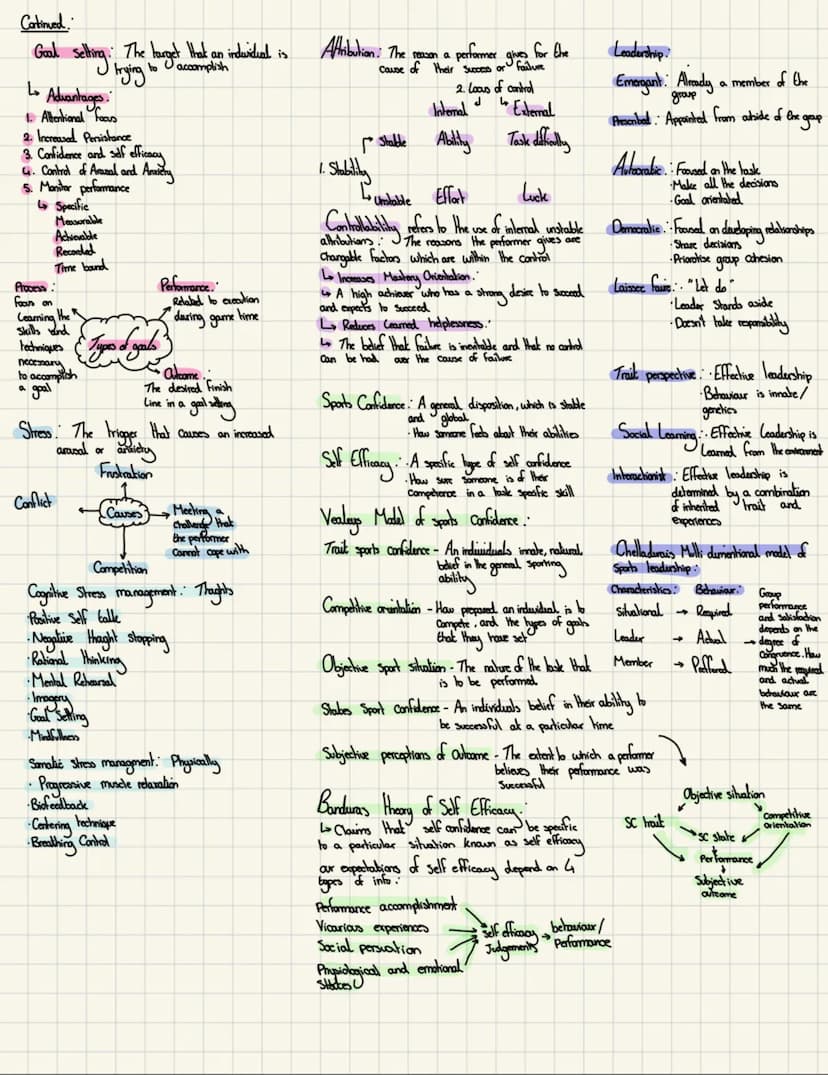 Continued:
Goal Setting: The target that an individual is
trying to accomplish
↳ Advantages:
1. Attentional focus
2. Increased Persistance
3. Confidence and self efficacy
4. Control of Arousal and Anxiety
5. Monitor performance
↳ Specific
Measurable
Achievable
Recorded
Time bound
Process:
Focus on
Learning the
skills and
techniques
necessary
to accomplish
a goal
Types of goals
Performance:
Related to execution
during game time
Outcome:
The desired finish
Line in a goal setting
Stress: The trigger that causes an increased
arousal or anxiety
Frustration
Conflict
Causes
Meeting a
challenge that
the performer
cannot cope with
Competition
Cognitive Stress management: Thoughts
·Positive Self talk
·Negative thought stopping
·Rational thinking
·Mental Rehearsal
·Imagery
·Goal Setting
·Mindfulness
Somatic Stress managment: Physically
· Progressive muscle relaxation
·Biofeedback
·Centering technique
·Breathing Control
Attribution: The reason a performer gives for the
cause of their success or failure
2. Locus of control
Internal External
Stable Ability Task difficulty
1. Stability
Unstable Effort Luck
Controllability refers to the use of internal unstable
attributions: The reasons the performer gives are
changable factors which are within the control
↳ Increases Mastery Orientation:
↳ A high achiever who has a strong desire to succeed
and expects to succeed
↳ Reduces Learned helplessness:
↳ The belief that failure is inevitable and that no control
can be had over the cause of failure
Sports Confidence: A general disposition, which is stable
and global
·How someone feels about their abilities
Self Efficacy: ·A specific type of self confidence
·How sure someone is of their
Competence in a task specific skill
Vealeys Model of sports Confidence:
Trait sports confidence - An individuals innate, natural
belief in the general sporting
ability
Competitive orientation - How prepared an individual is to
compete, and the types of goals
that they have set
Objective sport situation - The nature of the task that
is to be performed
States Sport confidence - An individuals belief in their ability to
be successful at a particular time
Subjective perceptions of Outcome - The extent to which a performer
believes their performance was
successful
Banduras theory of Self Efficacy:
↳ Claims that self confidence can be specific
to a particular situation known as self efficacy
our expectations of self efficacy depend on 4
types of info:
Performance accomplishment
Vicarious experiences
Social persuation
Physiological and emotional
states
Self efficacy
Judgements
behaviour/
Performance
Leadership:
Emergant: Already a member of the
group
Prescribed: Appointed from outside of the group
Autocratic: ·Focused on the task
·Make all the decisions
·Goal orientated
Democratic: ·Focused on developing relationships
·Share decisions
·Prioritise group cohesion
Laissez faire: ·"Let do"
·Leader Stands aside
·Doesn't take responsibility
Trait perspective: ·Effective leadership
·Behaviour is innate/
genetics
Social Learning: ·Effective Leadership is
Learned from the environment
Interactionist: Effective leadership is
determined by a combination
of inherited trait and
experiences
Chelladurais Multi dimentional model of
Sports leadership:
Characteristics: Behaviour:
Situational → Required
Leader → Actual
Member → Preffered
Group
performance
and satisfaction
depends on the
degree of
congruence. How
much the required
and actual
behaviour are
the same
Objective situation
SC trait
Competitive
orientation
SC State
Performance
Subjective
outcome